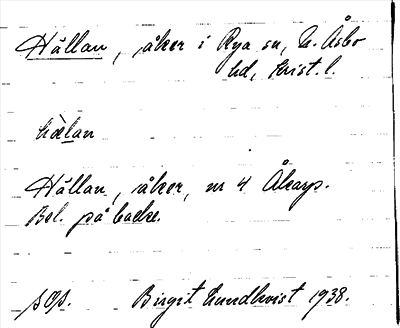 Hällan, åker i Rya sn, N. Åsbo
hd, Krist. l.
Hällan, åker, nr 4 Åkarp.
Bel. på backe.
Birgit Lundkvist 1938.